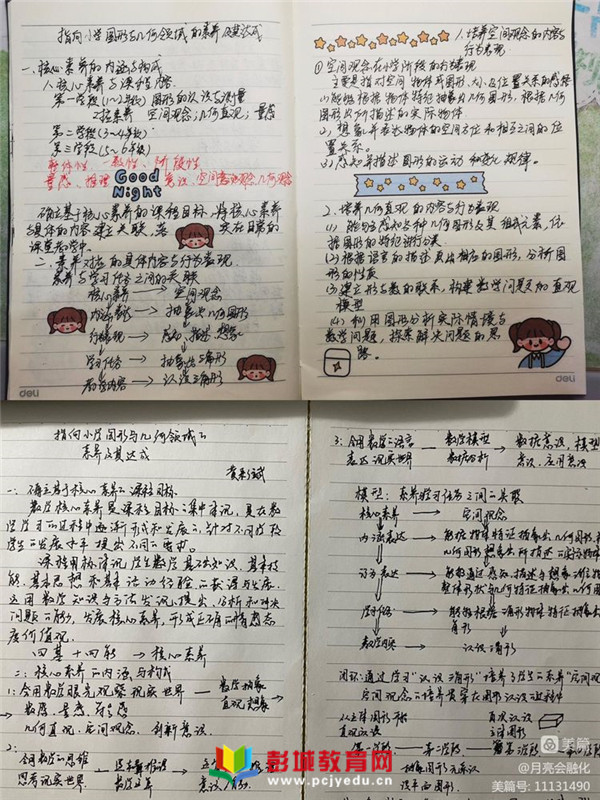 指向小学图形与几何领域的素养及其达成
一、核心素养的内涵与构成
1.核心素养与课程内容
第一学段(1~2年级) 图形的认识与测量
核心素养 空间观念;几何直观;量感
第二学段(3~4年级)
第三学段(5~6年级)
整体性、一致性、阶段性
量感、推理 意识、空间观念 几何直观
Good
Night
确立基于核心素养的课程目标,将核心素养
与具体的内容建立关联,落实在日常的
课堂教学中。
二、素养对应的具体内容与行为表现
素养与学习任务之间的关联
核心素养 → 空间观念
内涵表达 → 抽象出几何图形
行为表现 → 感知、描述、想象
学习任务 → 抽象出三角形
教学内容 → 认识三角形
deli
1.培养空间观念的内容与
行为表现
①空间观念在小学阶段的行为表现
主要是指对空间物体或图形大小及位置关系的感悟
(1)能够根据物体特征抽象出几何图形,根据几何
图形想象所描述的实际物体
(2)想象并表达物体的空间方位和相互之间的位
置关系。
(3)感知并描述图形的运动和变化规律。
2、培养几何直观的内容与行为表现
(1)能够感知各种几何图形与其组成元素,依
据图形的特征进行分类
(2)根据语言的描述画出相应的图形,分析图
形的性质
(3)建立形与数的联系,构建数学问题的直观
模型
(4)利用图形分析实际情境与
数学问题,探索解决问题的思
路。
deli
指向小学图形与几何领域的
素养及其达成
一:确立基于核心素养的课程目标
数学核心素养是课程目标的集中体现,是在数
学学习的过程中逐渐形成和发展的,针对不同学段
学生的发展水平提出不同的要求。
课程目标体现学生数学基础知识、基本技
能、基本思想和基本活动经验的获得与发展,
运用数学知识与方法发现、提出、分析和解决
问题的能力,发展核心素养,形成正确的情感态
度价值观。
四基+四能 → 核心素养
二:核心素养的内涵与构成
1:会用数学眼光观察现实世界 — 数学抽象
直观想象
数感、量感、符号感
几何直观、空间观念、创新意识
2:
会用数学的思维
思考现实世界
3:会用数学的语言 数学模型 数据意识、模型
表达现实世界 数据分析 意识、应用意识
模型:素养与学习任务之间的关联
核心素养 → 空间观念
内涵表达 → 能根据物体特征抽象出几何图形,
几何图形想象出所描述的实际物体
行为表达 → 能够通过感知、描述与想象
学习任务 → 能够根据三角形物体特征抽象出
三角形
教学内容 → 认识三角形
闭环:通过学习“认识三角形”培养了学生的素养“空间观
空间观念的培养贯穿在图形认识的过程中
从立体图形开始 再次认识
直观认识 立体图形
第一学段 — 第二学段 — 第三学段
认识平面图形
彭城教育网
www.pcjyedu.cn
美篇
@月亮会融化
美篇号: 11131490